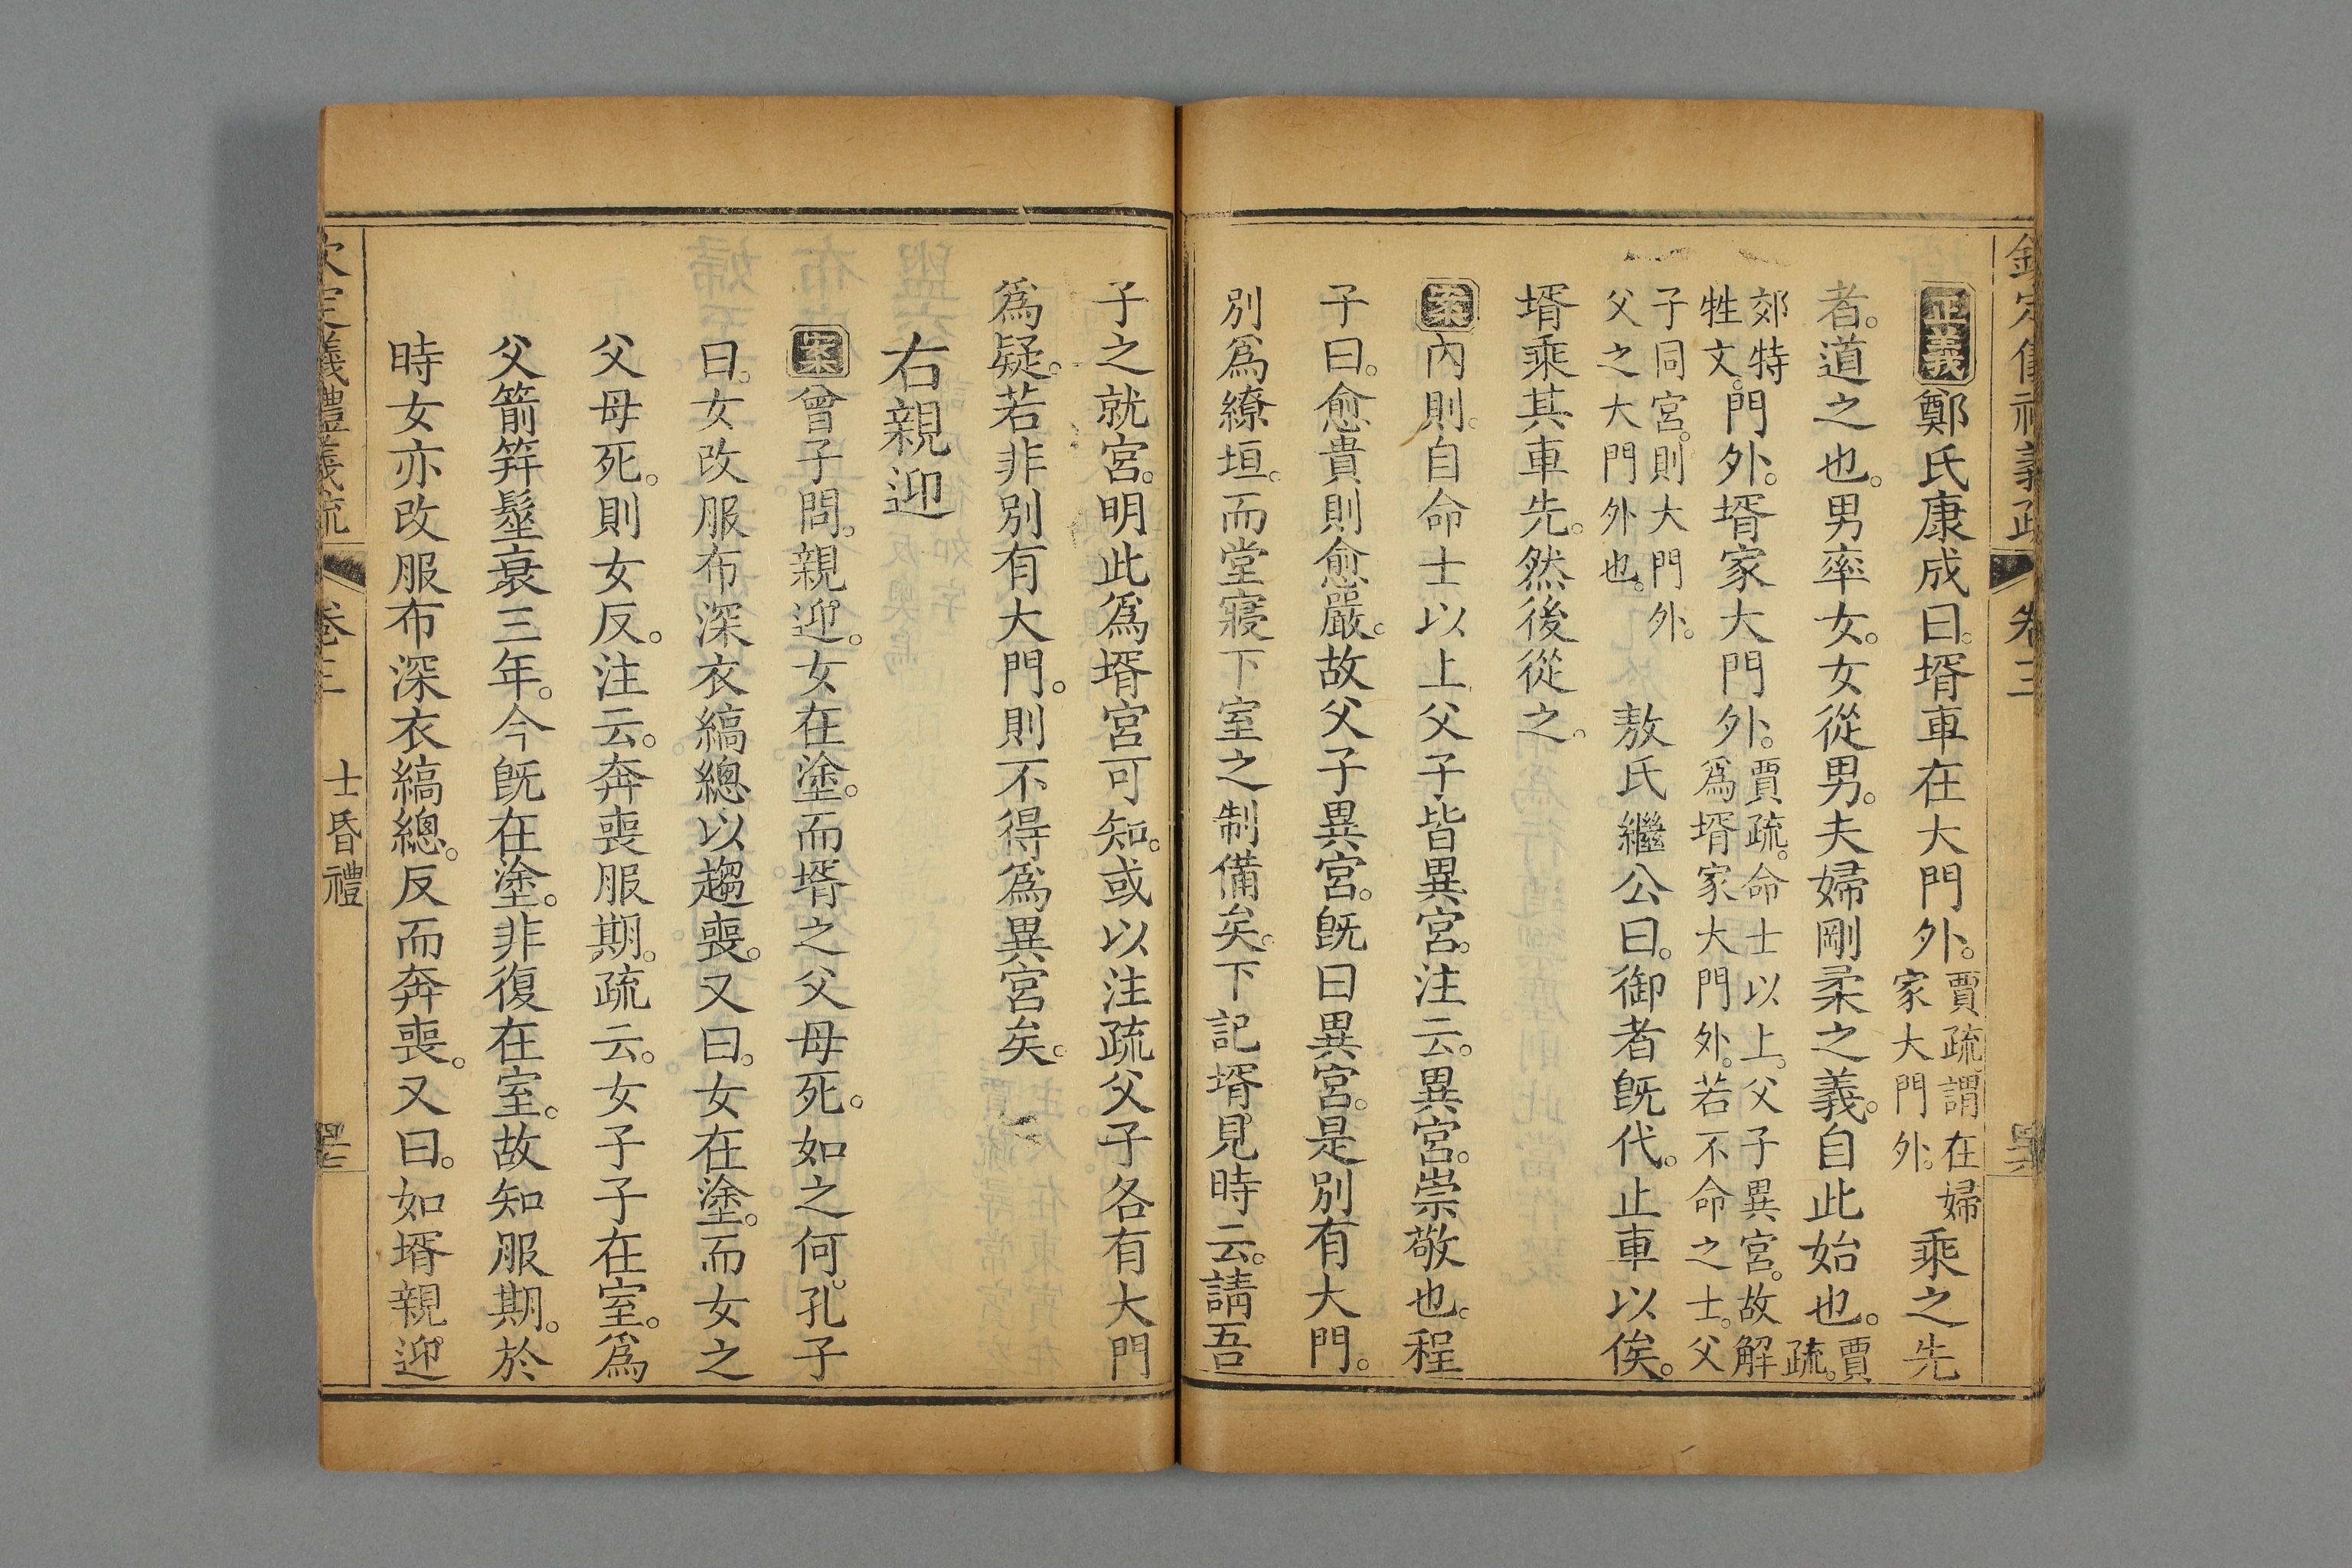 欽定儀禮義疏 卷三
正義鄭氏康成曰。壻車在大門外。賈疏謂在婦家大門外。乘之先
者。道之也。男率女。女從男。夫婦剛柔之義。自此始也。賈疏。
郊特牲文。門外。壻家大門外。賈疏。命士以上。父子異宮。故解爲壻家大門外。若不命之士。父
子同宮。則大門外。父之大門外也。敖氏繼公曰。御者旣代。止車以俟。
壻乘其車先。然後從之。
案內則。自命士以上父子皆異宮。注云。異宮。崇敬也。程
子曰。愈貴則愈嚴。故父子異宮。旣曰異宮。是別有大門。
別爲繚垣。而堂寢下室之制備矣。下記壻見時云。請吾
子之就宮。明此爲壻宮可知。或以注疏父子各有大門
爲疑。若非別有大門。則不得爲異宮矣。
右親迎
案曾子問。親迎。女在塗。而壻之父母死。如之何。孔子
曰。女改服布深衣縞總以趨喪。又曰。女在塗。而女之
父母死。則女反。注云。奔喪服期。疏云。女子子在室。爲
父箭筓髽衰三年。今旣在塗。非復在室。故知服期。於
時女亦改服布深衣縞總。反而奔喪。又曰。如壻親迎
欽定儀禮義疏 卷三 士昏禮